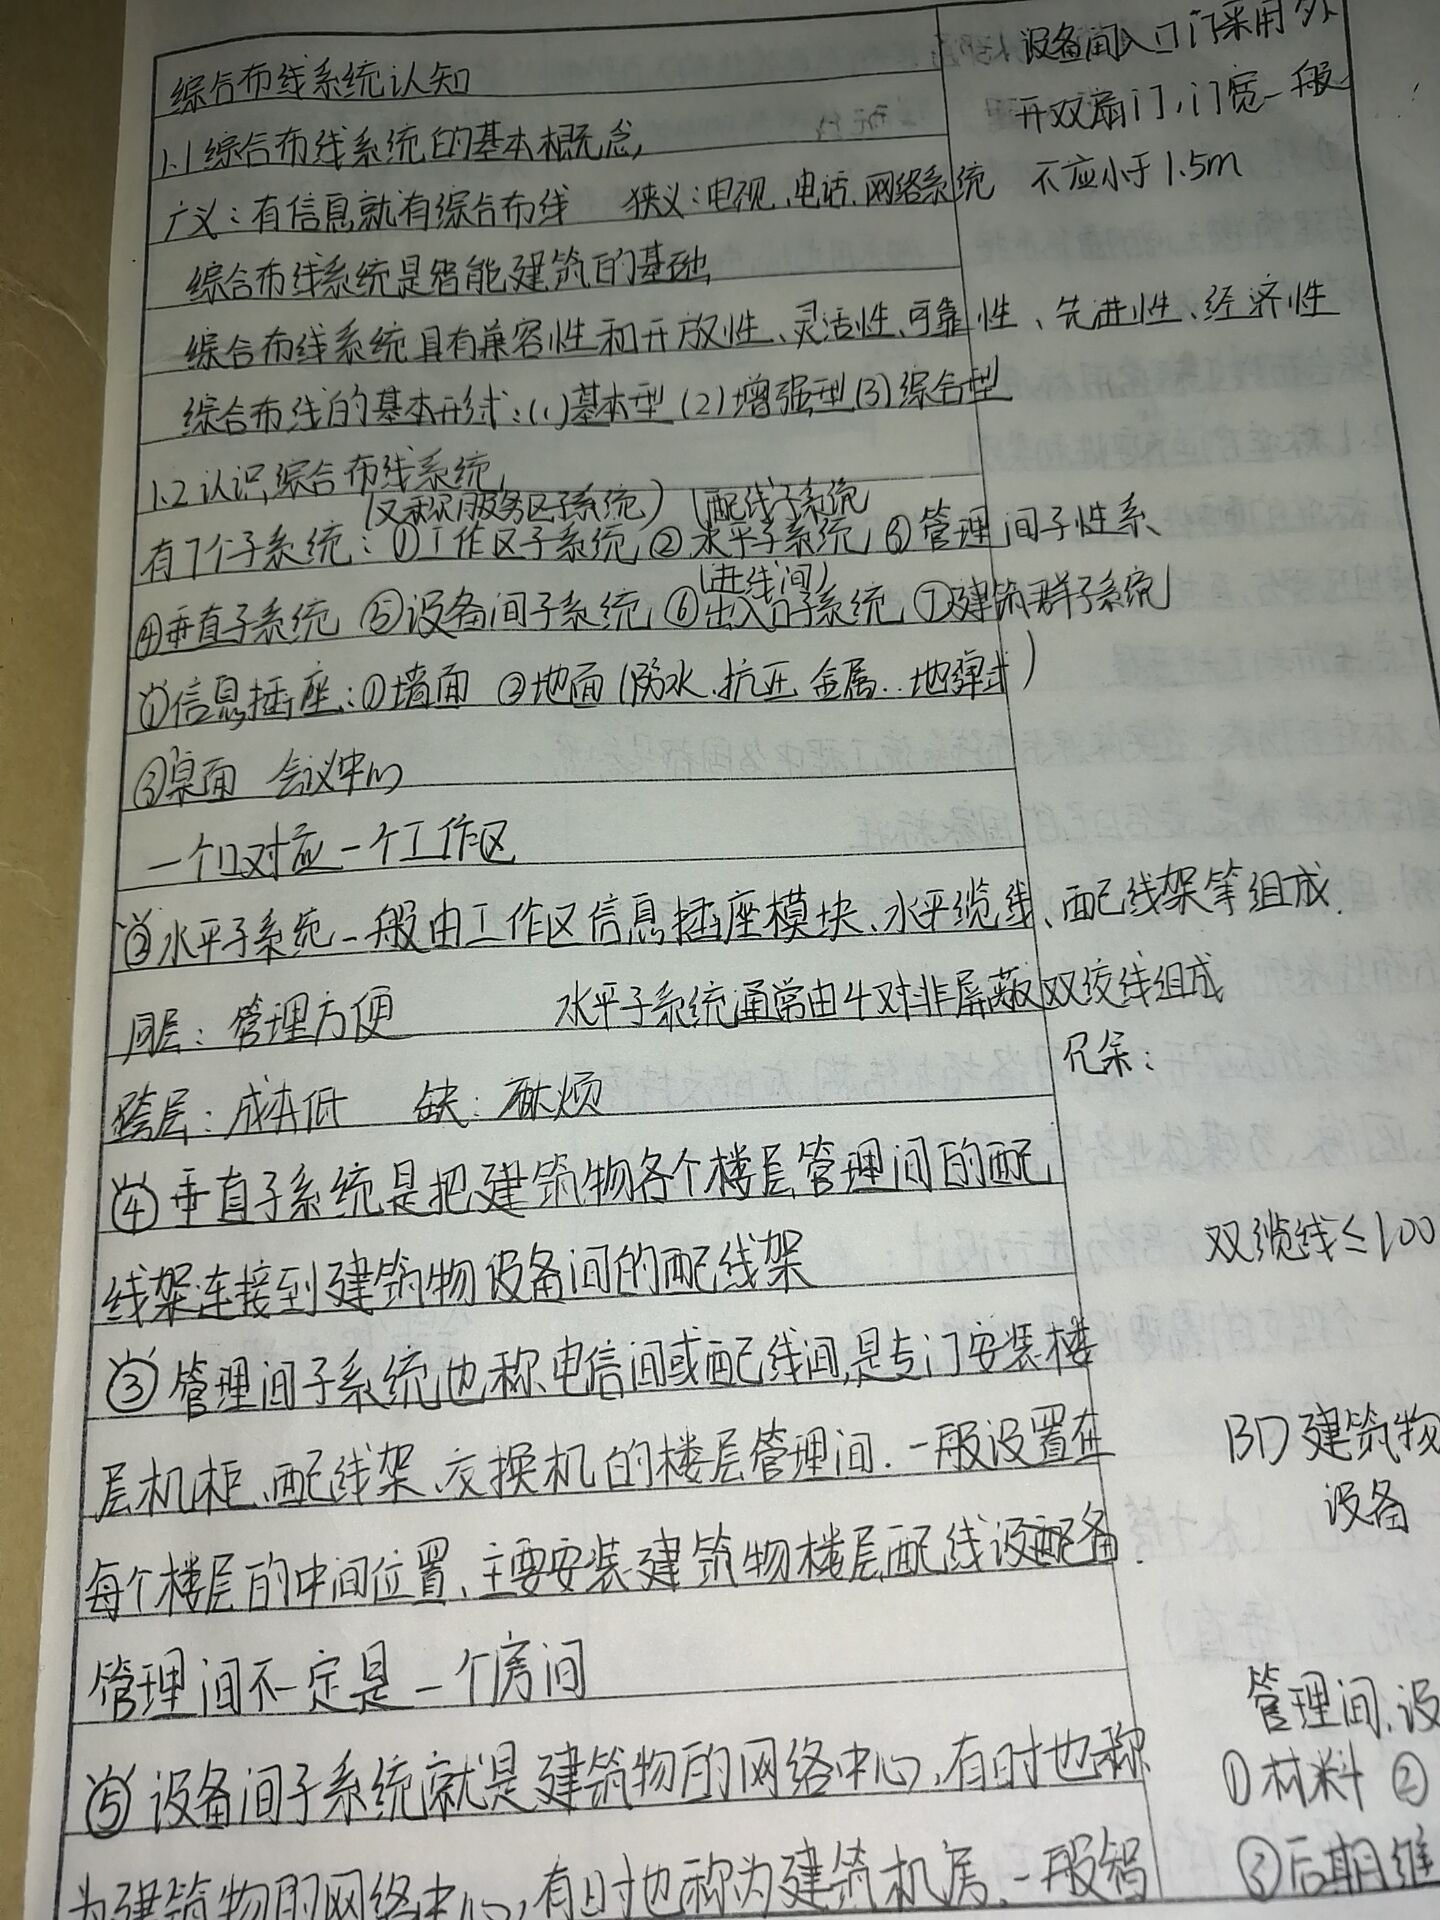 综合布线系统认知
1.1综合布线系统的基本概念
广义:有信息就有综合布线 狭义:电视、电话、网络系统
综合布线系统是智能建筑的基础
综合布线系统具有兼容性和开放性、灵活性、可靠性、先进性、经济性
综合布线的基本形式:(1)基本型(2)增强型(3)综合型
1.2认识综合布线系统
(又称服务区子系统) (配线子系统
有7个子系统:①工作区子系统②水平子系统③管理间子性系
(进线间)
④垂直子系统 ⑤设备间子系统⑥出入口子系统⑦建筑群子系统
①信息插座:①墙面 ②地面(防水.抗压 金属..地弹式)
③桌面 会议中心
一个口对应一个工作区
②水平子系统一般由工作区信息插座模块、水平缆线、配线架等组成.
同层:管理方便 水平子系统通常由4对非屏蔽双绞线组成
跨层:成本低 缺:麻烦
④垂直子系统是把建筑物各个楼层管理间的配
线架连接到建筑物设备间的配线架
③管理间子系统也称电信间或配线间,是专门安装楼
层机柜、配线架、交换机的楼层管理间.一般设置在
每个楼层的中间位置、主要安装建筑物楼层配线设配备.
管理间不一定是一个房间
⑤设备间子系统就是建筑物的网络中心,有时也称
为建筑物的网络中心,有时也称为建筑机房.一般智
设备间入口门采用外
开双扇门,门宽一般
不应小于1.5m
冗余:
双缆线≤100
BD建筑物
设备
管理间、设
①材料 ②
③后期维